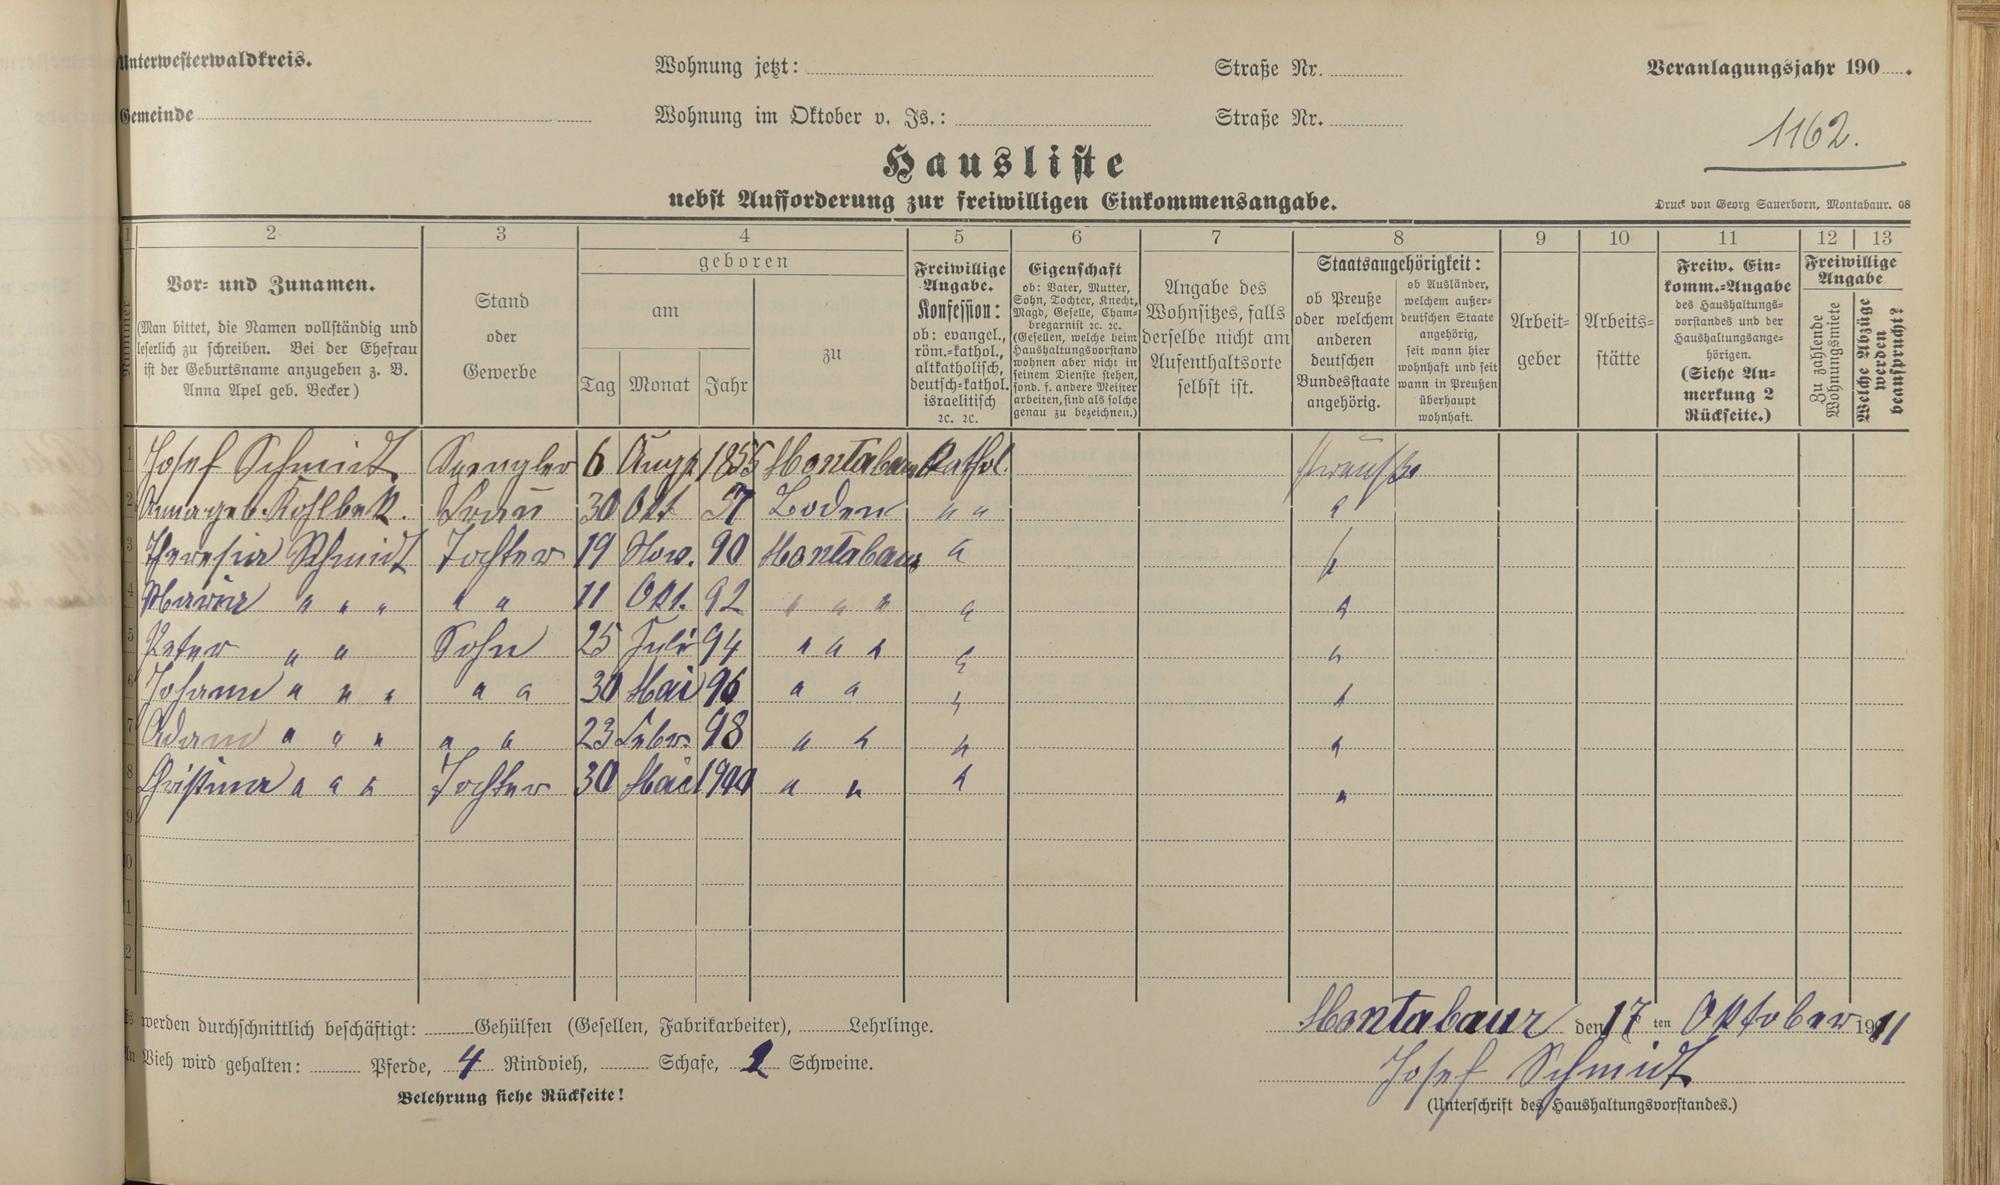 Unterwesterwaldkreis.
Wohnung jetzt: Straße Nr.
Veranlagungsjahr 190 .
Gemeinde
Wohnung im Oktober v. Js.: Straße Nr.
1162.
Hausliste
nebst Aufforderung zur freiwilligen Einkommensangabe.
Druck von Georg Sauerborn, Montabaur. 08
1 2 3 4 5 6 7 8 9 10 11 12 13
Nummer
Vor- und Zunamen.
(Man bittet, die Namen vollständig und
leserlich zu schreiben. Bei der Ehefrau
ist der Geburtsname anzugeben z. B.
Anna Apel geb. Becker)
Stand
oder
Gewerbe
geboren
am
Tag Monat Jahr
zu
Freiwillige
Angabe.
Konfession:
ob: evangel.,
röm.-kathol.,
altkatholisch,
deutsch-kathol.
israelitisch
ꝛc. ꝛc.
Eigenschaft
ob: Vater, Mutter,
Sohn, Tochter, Knecht,
Magd, Geselle, Cham-
bregarnist ꝛc. ꝛc.
(Gesellen, welche beim
Haushaltungsvorstand
wohnen aber nicht in
seinem Dienste stehen,
sond. f. andere Meister
arbeiten, sind als solche
genau zu bezeichnen.)
Angabe des
Wohnsitzes, falls
derselbe nicht am
Aufenthaltsorte
selbst ist.
Staatsangehörigkeit:
ob Preuße
oder welchem
anderen
deutschen
Bundesstaate
angehörig.
ob Ausländer,
welchem außer-
deutschen Staate
angehörig,
seit wann hier
wohnhaft und seit
wann in Preußen
überhaupt
wohnhaft.
Arbeit-
geber
Arbeits-
stätte
Freiw. Ein-
komm.-Angabe
des Haushaltungs-
vorstandes und der
Haushaltungsange-
hörigen.
(Siehe An-
merkung 2
Rückseite.)
Freiwillige
Angabe
Zu zahlende
Wohnungsmiete
Welche Abzüge
werden
beansprucht?
1 Josef Schmidt Spengler 6 Augs 1855 Montabaur Kathol. Preuße
2 Anna geb. Kohlbek. Frau 30 Okt 57 Boden " " "
3 Theresia Schmidt Tochter 19 Nov. 90 Montabaur " "
4 Maria " " " " " 11 Okt. 92 " " " " "
5 Peter " " Sohn 25 Juli 94 " " " " "
6 Johann " " " " " 30 Mai 96 " " " "
7 Adam " " " " " 23 Febr. 98 " " " "
8 Christina " " " Tochter 30 Mai 1900 " " " "
9
0
1
2
Es werden durchschnittlich beschäftigt: Gehülfen (Gesellen, Fabrikarbeiter), Lehrlinge.
An Vieh wird gehalten: Pferde, 4 Rindvieh, Schafe, 2 Schweine.
Belehrung siehe Rückseite!
Montabaur den 17 ten Oktober 1911
Josef Schmidt
(Unterschrift des Haushaltungsvorstandes.)